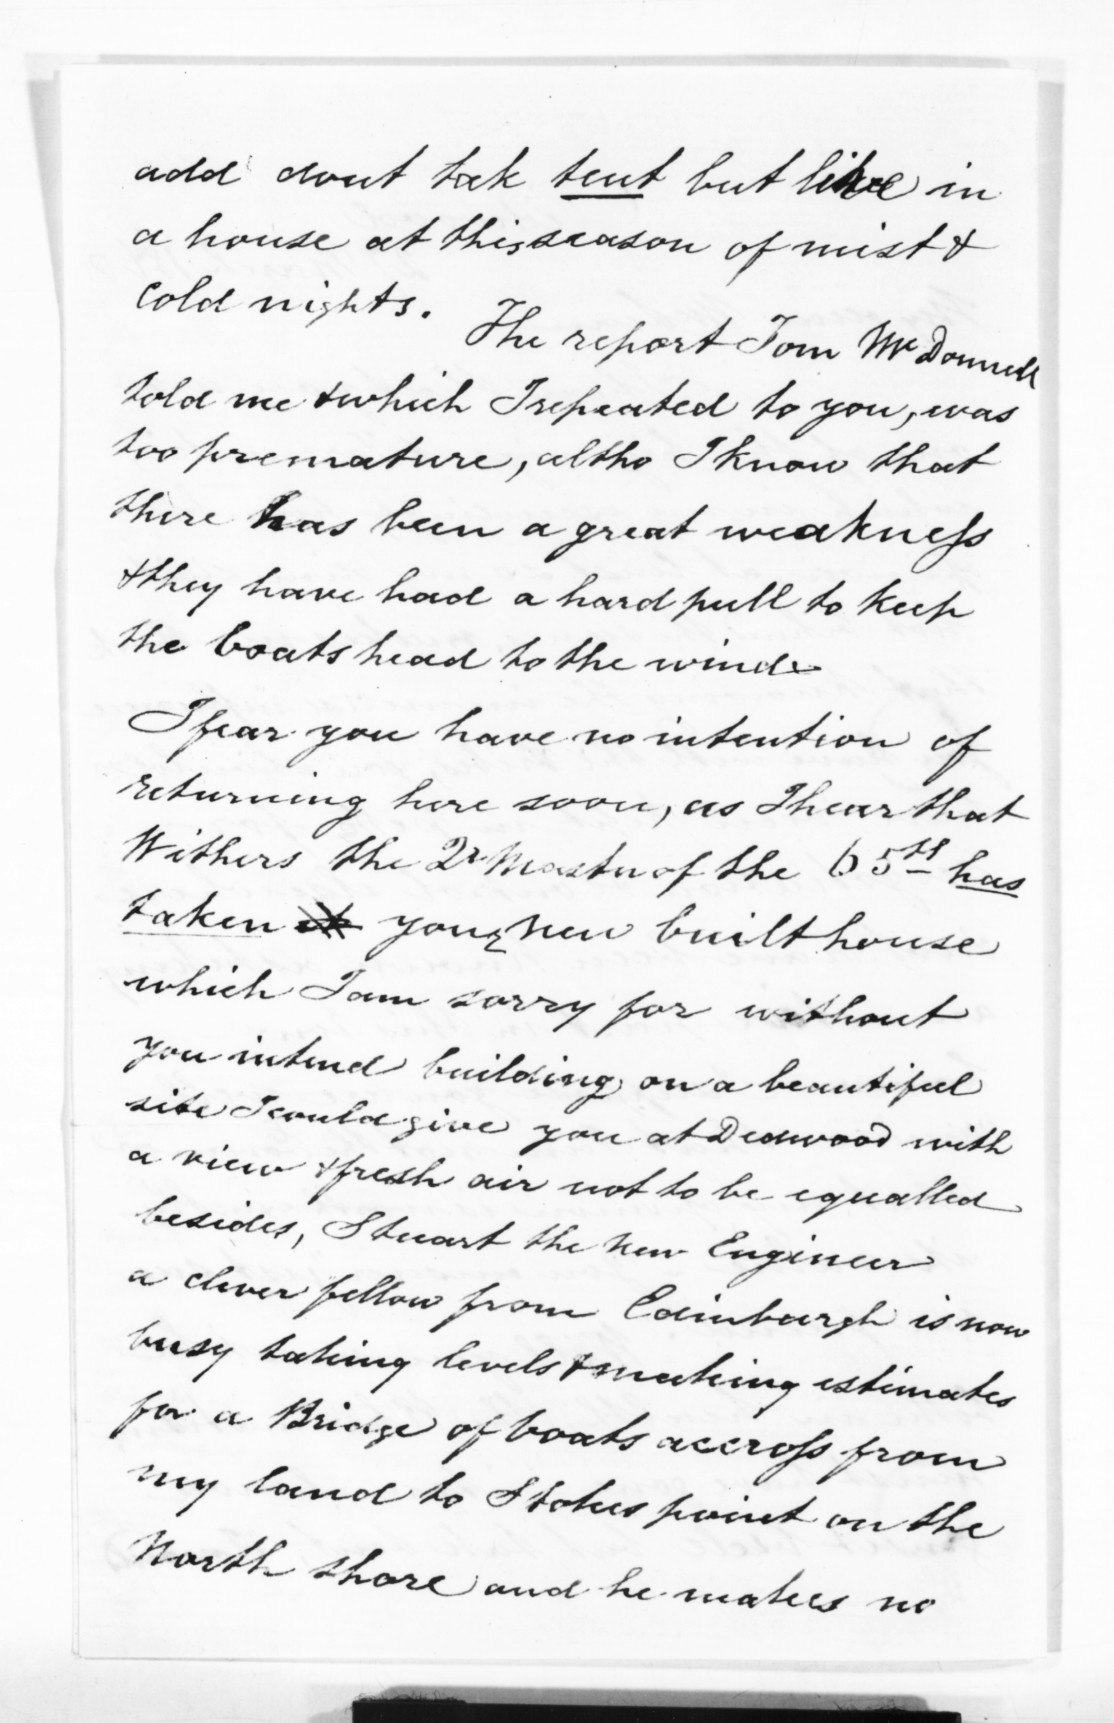 add dont tak tent but live in
a house at this season of mist &
cold nights.
The report Tom McDonnell
told me & which I repeated to you, was
too premature, altho I know that
there has been a great weakness
& they have had a hard pull to keep
the boats head to the wind
I fear you have no intention of
returning here soon, as I hear that
Withers the Qr Master of the 65th has
taken your new built house
which I am sorry for without
you intend building on a beautiful
site I could give you at Dedwood with
a view & fresh air not to be equalled
besides, Stuart the new Engineer
a clever fellow from Edinburgh is now
busy taking levels & making estimates
for a Bridge of boats accross from
my land to Stokes point on the
North shore and he makes no